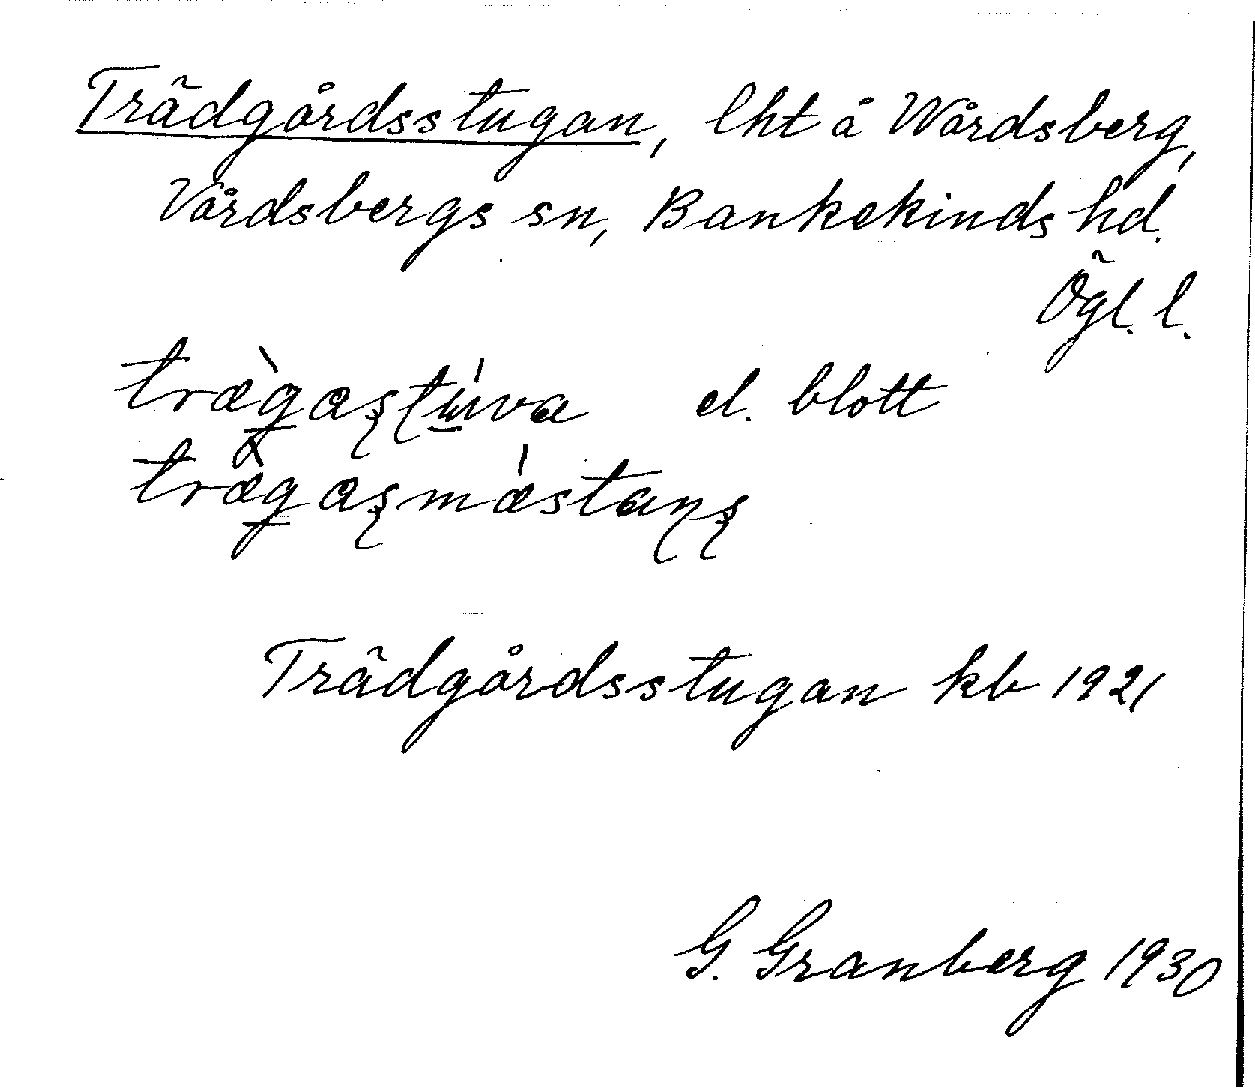 Trädgårdsstugan, lht å Wårdsberg,
Vårdsbergs sn, Bankekinds hd.
Ögl. l.
træ̀gæʂʈúva el. blott
træ̀gæʂmǽstaɳʂ
Trädgårdsstugan kb 1921
G. Granberg 1930